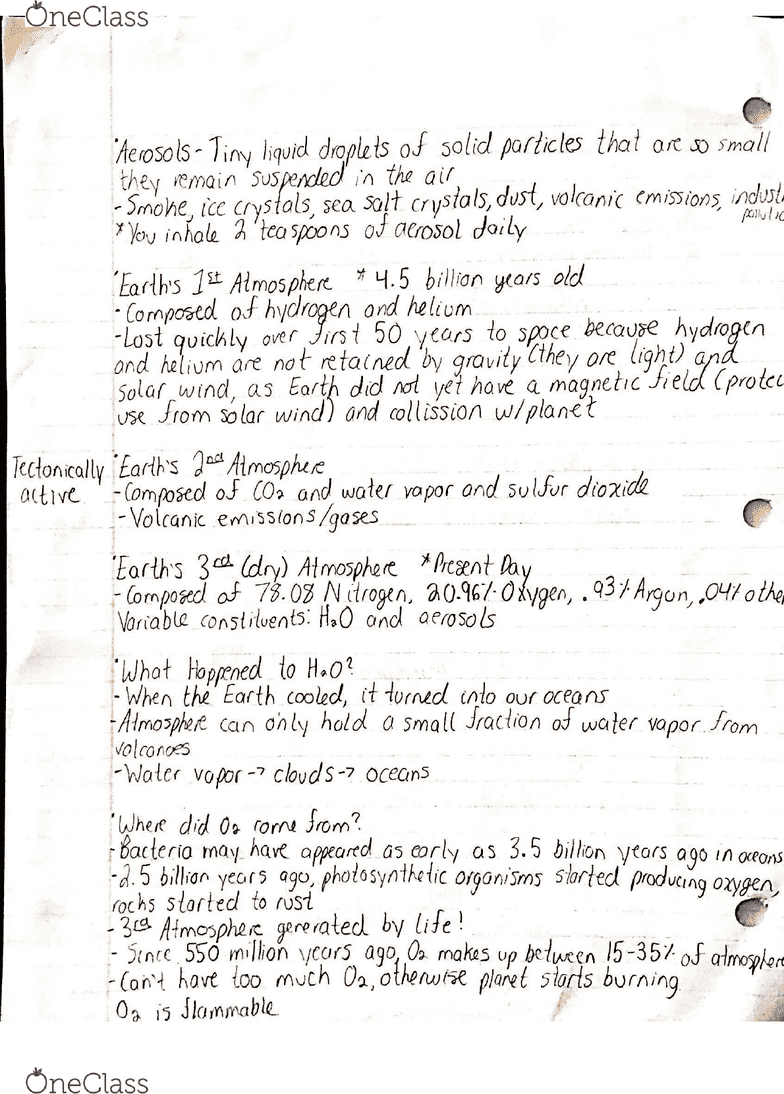 OneClass
'Aerosols- Tiny liquid droplets of solid particles that are so small
they remain suspended in the air
- Smoke, ice crystals, sea salt crystals, dust, volcanic emissions,
*You inhale 2 teaspoons of aerosol daily
'Earth's 1st Atmosphere * 4.5 billion years old
- Composed of hydrogen and helium
- Lost quickly over first 50 years to space because hydrogen
and helium are not retained by gravity (they are light) and
solar wind, as Earth did not yet have a magnetic field (protec
use from solar wind) and collission w/planet
Tectonically
active
'Earth's 2nd Atmosphere
- Composed of CO2 and water vapor and sulfur dioxide
- Volcanic emissions/gases
'Earth's 3rd (dry) Atmosphere *Present Day
- Composed of 78.08 Nitrogen, 20.96% Oxygen, .93% Argon, .04% othe
Variable constituents: H2O and aerosols
'What Happened to H2O?
- When the Earth cooled, it turned into our oceans
- Atmosphere can only hold a small fraction of water vapor from
volcanoes
- Water vapor -> clouds -> oceans
'Where did O2 come from?
- Bacteria may have appeared as early as 3.5 billion years ago in oceans
- 2.5 billion years ago, photosynthetic organisms started producing oxygen,
rocks started to rust
- 3rd Atmosphere generated by life!
- Since 550 million years ago, O2 makes up between 15-35% of atmosphere
- Can't have too much O2, otherwise planet starts burning
O2 is flammable
OneClass